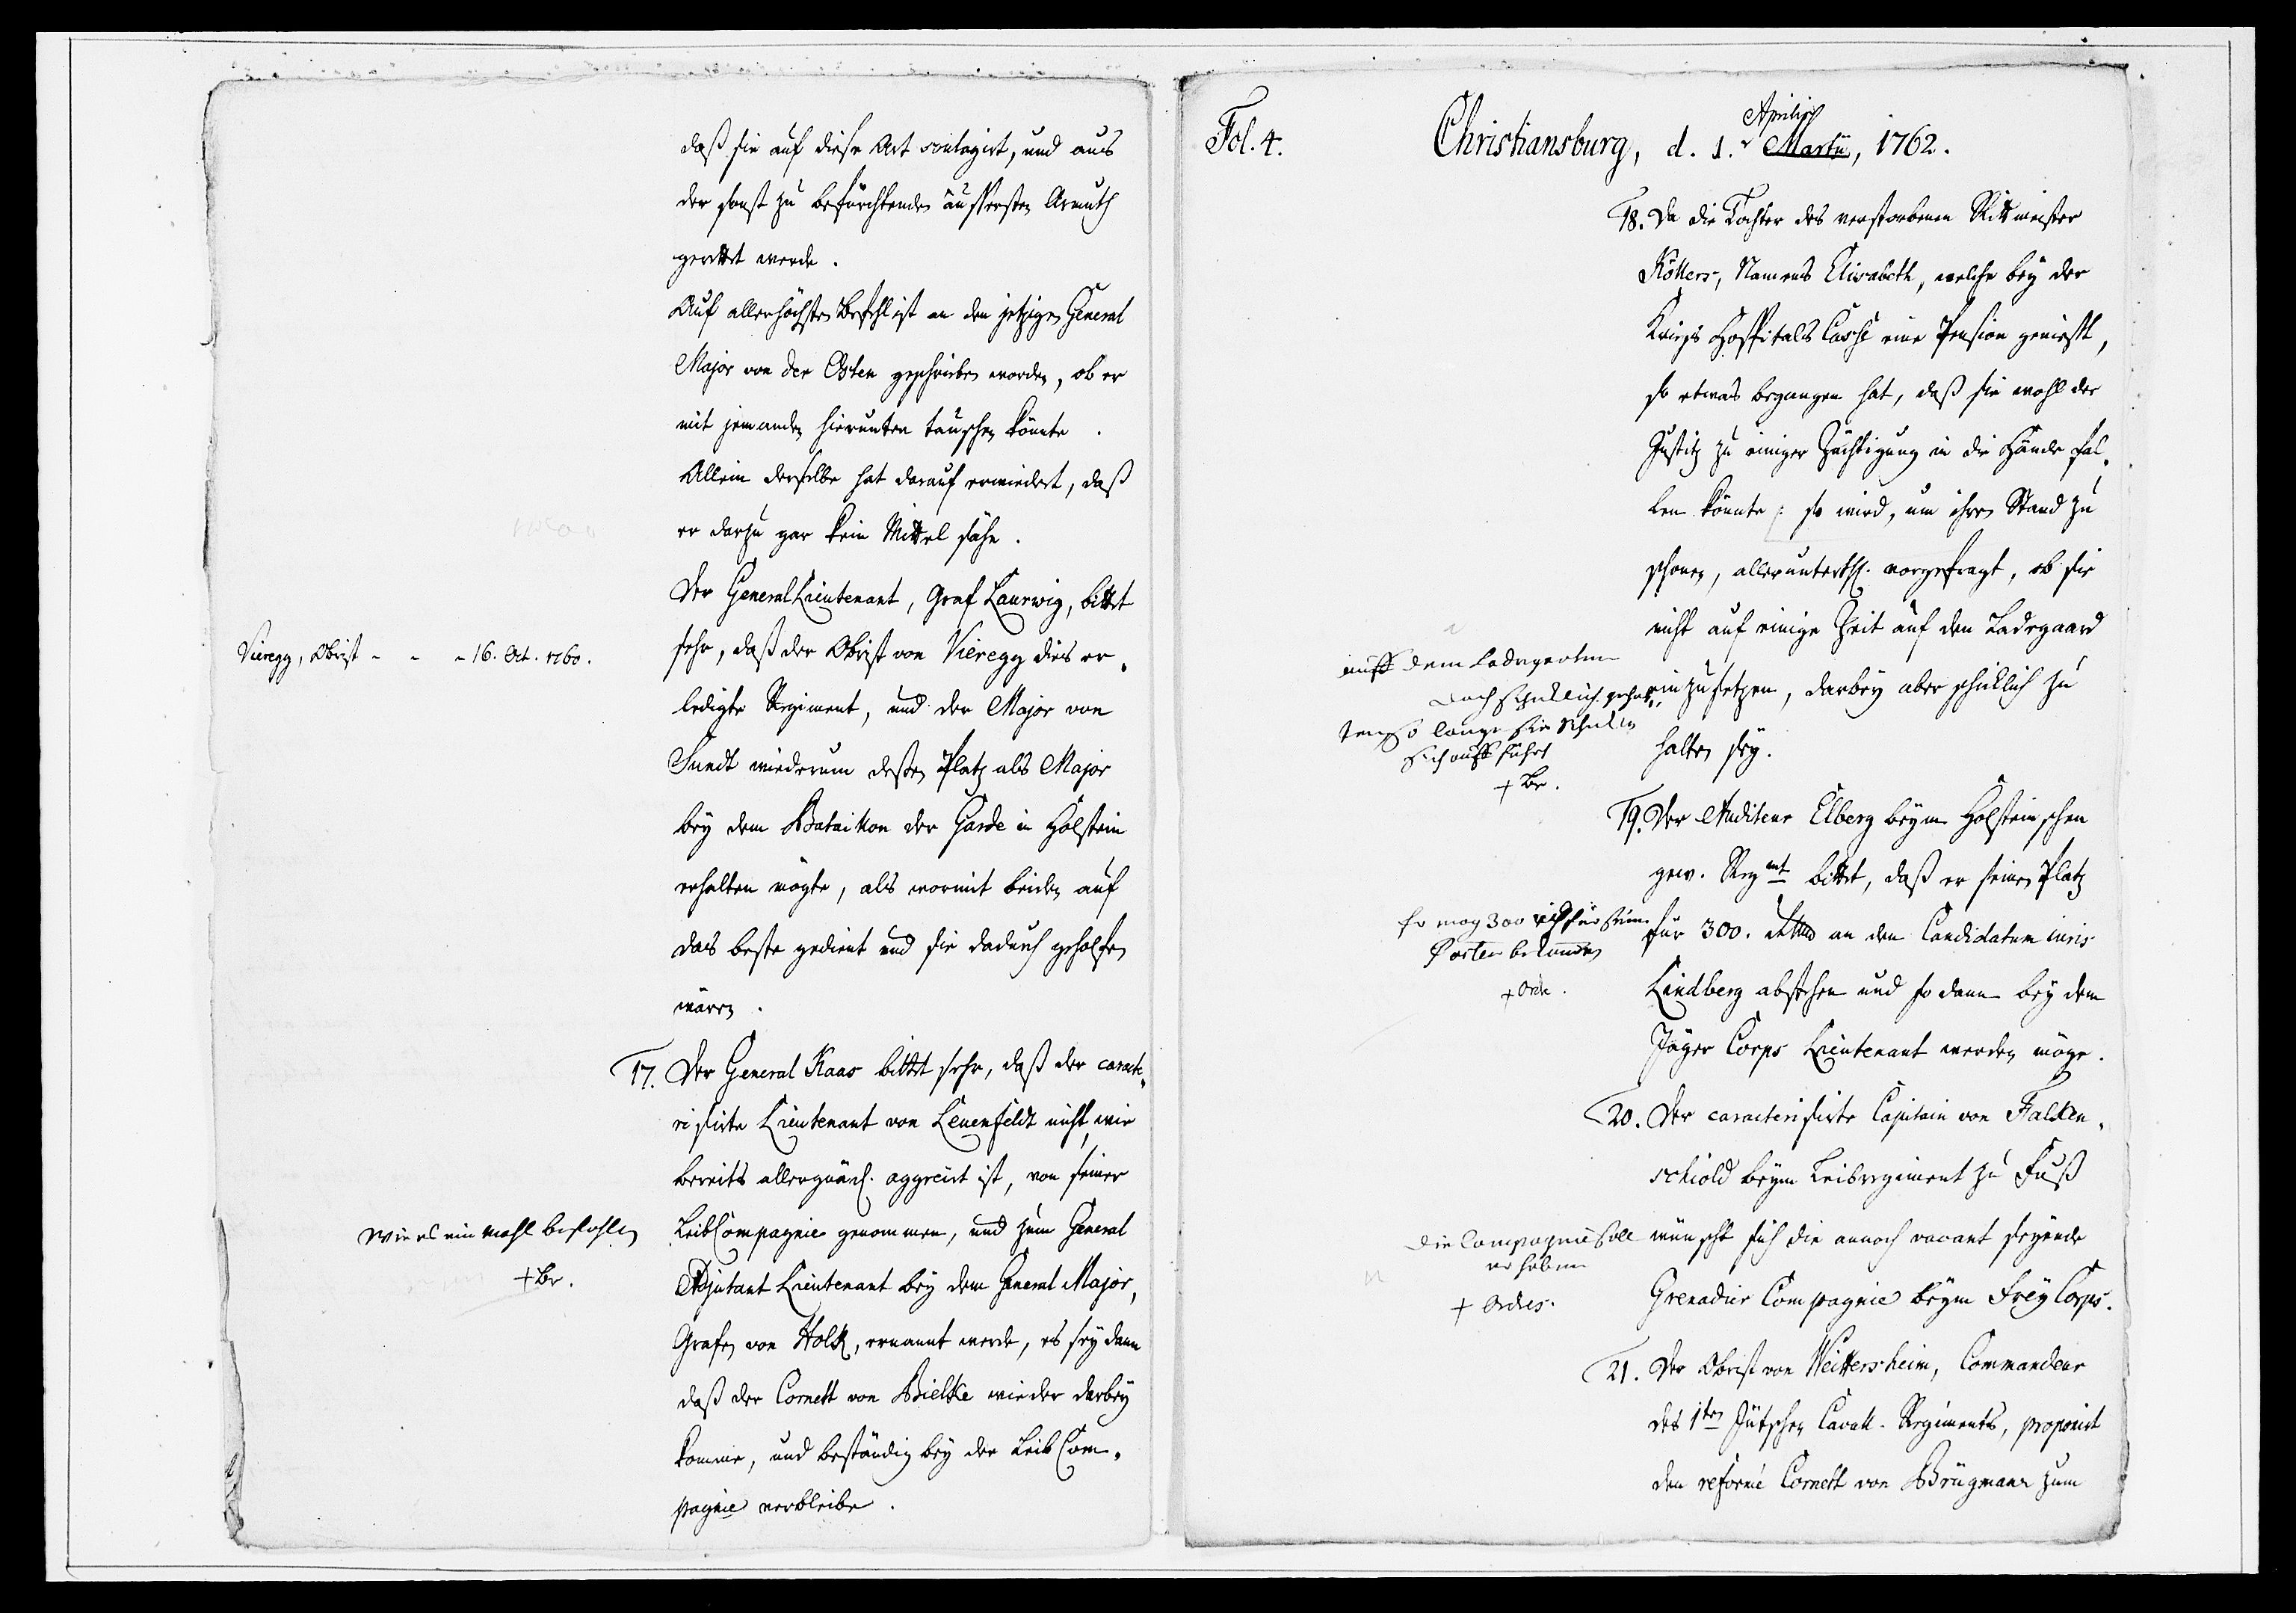 daß sie auf diese Art soulagirt, und aus
der sonst zu befürchtenden äussersten Armuth
gerettet werde.
Auf allerhöchsten Befehl ist an den jetzigen General
Major von der Osten geschrieben worden, ob er
mit jemanden hierunten tauschen könnte.
Allein derselbe hat darauf erwiedert, daß
er darzu gar kein Mittel sähe.
Der General Lieutenant, Graf Laurwig, bittet
Vieregg, Obrist - - - 16. Oct. 1760.
sehr, daß der Obrist von Vieregg dies er„
ledigte Regiment, und der Major von
Sundt wiederum dessen Platz als Major
bey dem Bataillon der Garde in Holstein
erhalten mögte, als wormit beiden auf
das beste gedient und sie dadurch geholfen
wären.
17. Der General Kaas bittet sehr, daß der caracte„
risirte Lieutenant von Leuenfeldt nicht, wie
bereits allergnäd. aggreirt ist, von seiner
Wie es ein mahl befohlen
+ Br.
Leib Compagnie genommen, und zum General
Adjutant Lieutenant bey dem General Major,
Grafen von Holck, ernannt werde, es sey dann
daß der Cornett von Bielke wieder darbey
komme, und beständig bey der Leib Com„
pagnie verbleibe.
Fol. 4.
Christiansburg, d. 1. Martii, 1762.
Aprilis
18. Da die Tochter des verstorbenen Rittmeister
Kötters, Namens Elisabeth, welche bey der
Kriegs Hospitals Casse eine Pension genießt,
so etwas begangen hat, daß sie wohl der
Justitz zu einiger Züchtigung in die Hände fal„
len könnte: so wird, um ihren Stand zu
schonen, allerunterth. vorgefragt, ob sie
nicht auf einige Zeit auf den Ladegaard
einzusetzen, darbey aber schicklich zu
halten sey.
auff dem Ladegarten
doch schicklich gehal„
ten so lange sie
sich auff führt
+ Br.
19. Der Auditeur Elberg beym Holsteinschen
gew. Regmt bittet, daß er seinen Platz
für 300. an den Candidatum iuris
Lindberg abstehen und so dann bey dem
Jäger Corps Lieutenant werden möge.
Er mag 300 für seinen
Posten bekommen
+ Ordr.
20. Der caracterisirte Capitain von Falken„
schiold beym Leibregiment zu Fuß
wünscht sich die annoch vacant seyende
Grenadier Compagnie beym Frey Corps.
die Compagnie soll
er haben
+ Ordres.
21. Der Obrist von Weittersheim, Commandeur
des 1ten Jütschen Cavall. Regiments, proponirt
den reformé Cornett von Brügmann zum